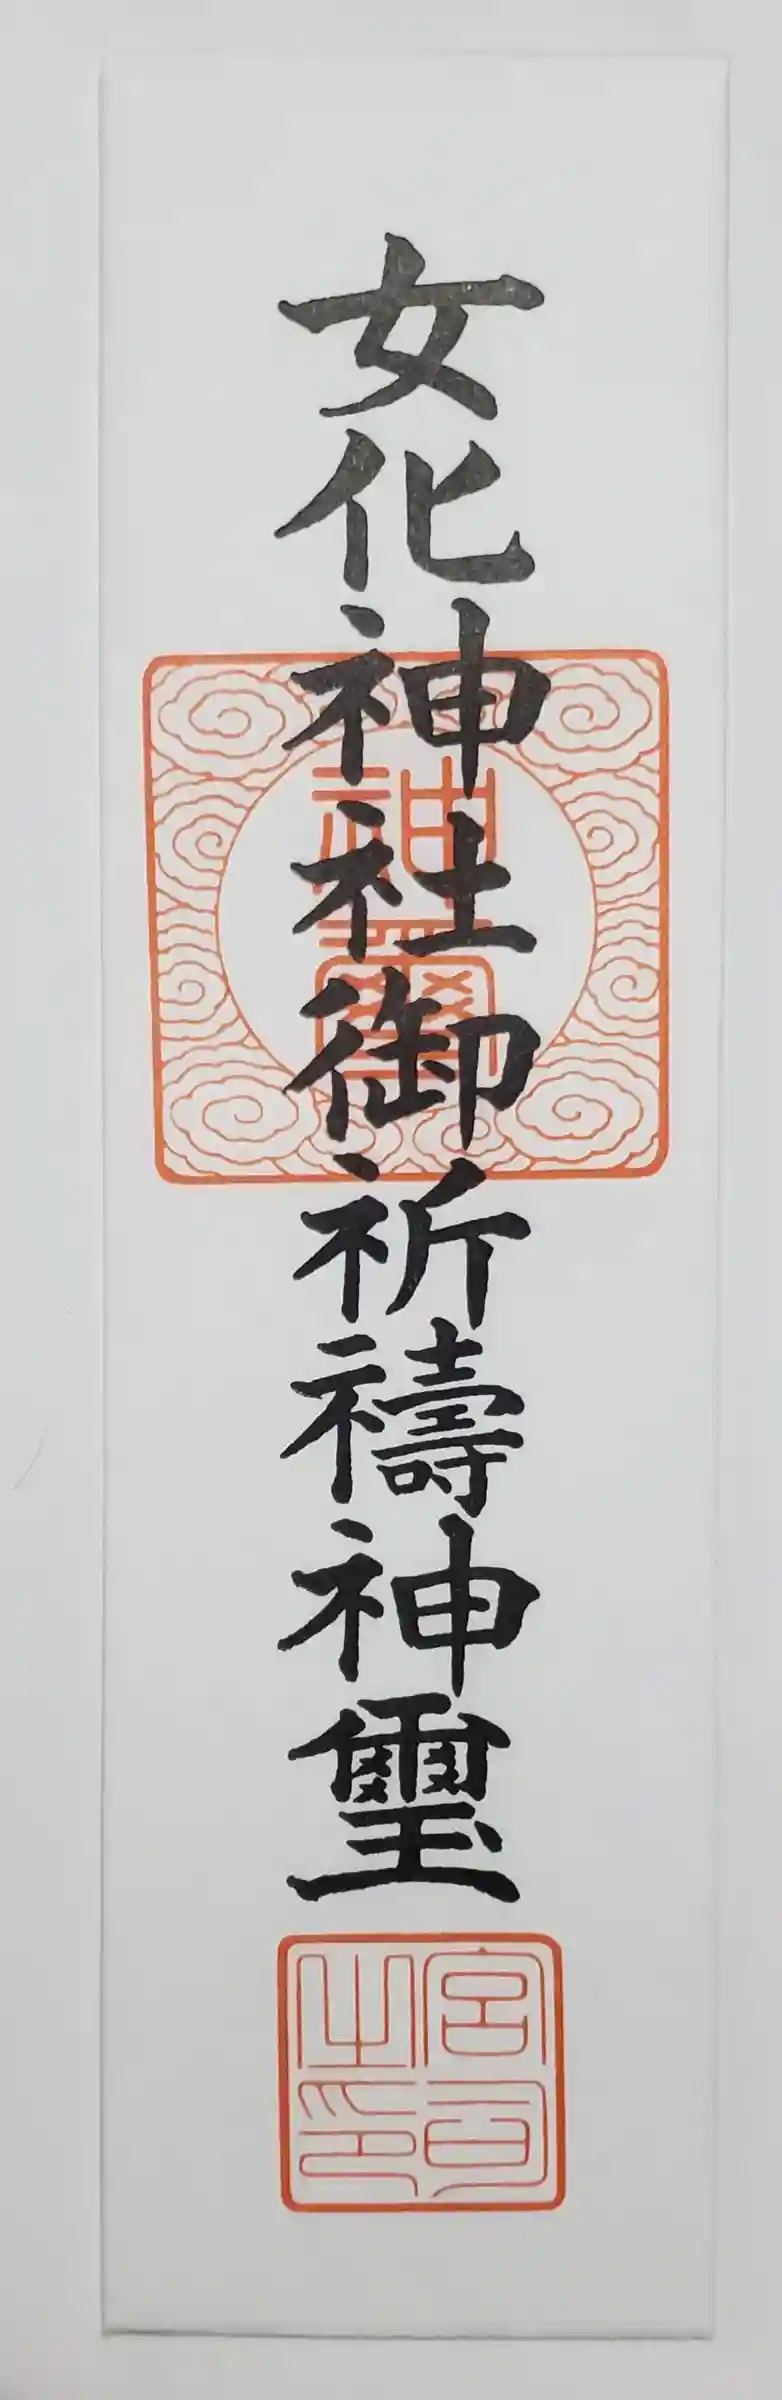 女化神社御祈禱神璽
神璽
宮司之印